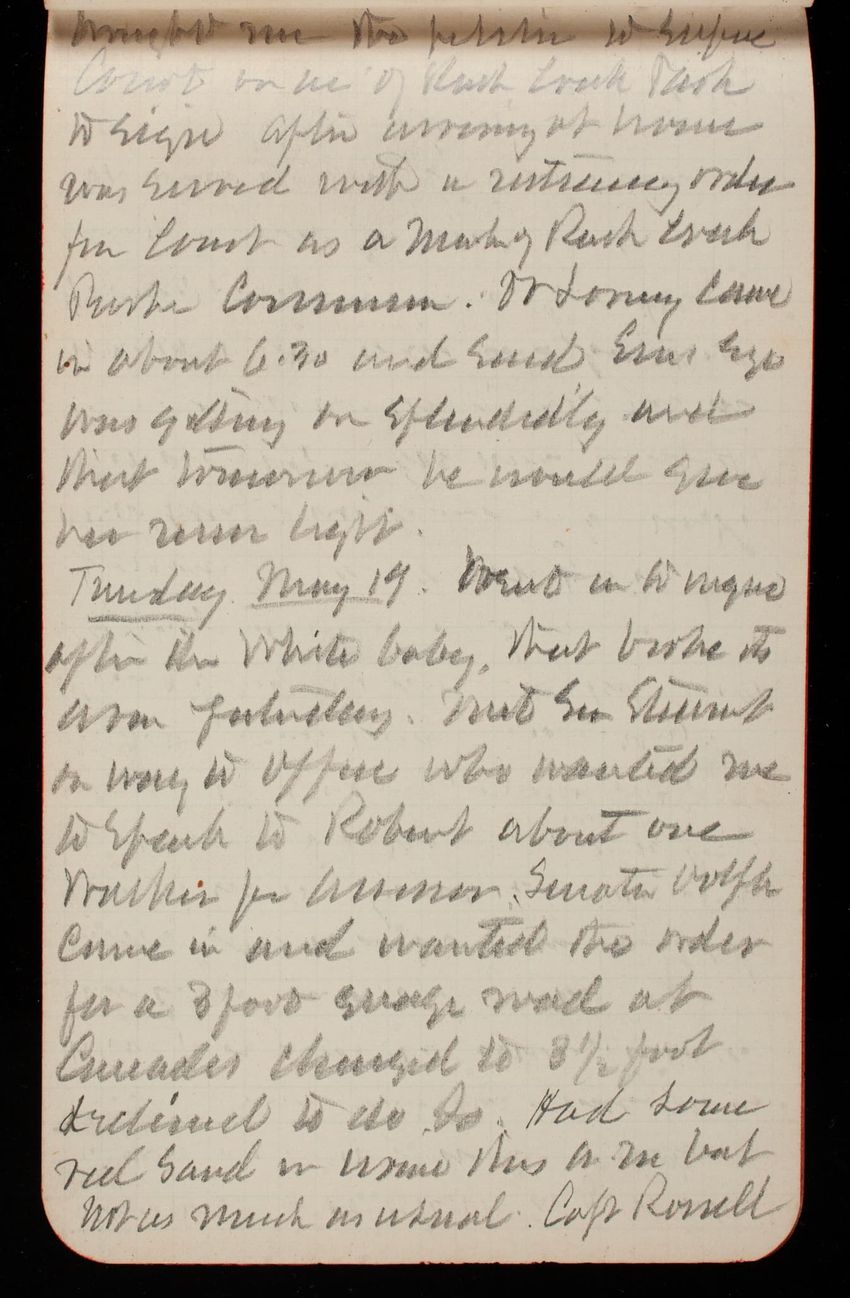 brought me the petition to Supreme
Court in re of Rock Creek Park
to sign after arriving at home
was served with a restraining order
for Court as a Mem of Rock Creek
Park Commission. Dr Loring came
in about 6.30 and said Ems Eye
was getting on splendidly and
that tomorrow he would give
her more light.
Tuesday May 19. Went in to inquire
after the White baby, that broke its
arm Saturday. Met Gen Stewart
on way to Office who wanted me
to speak to Robert about one
Walker for assessor. Senator Dolph
came in and wanted the order
for a 3 foot guage road at
Cascades changed to 3 1/2 foot
declined to do so. Had some
red sand in urine this a m but
not as much as usual. Capt Rossell